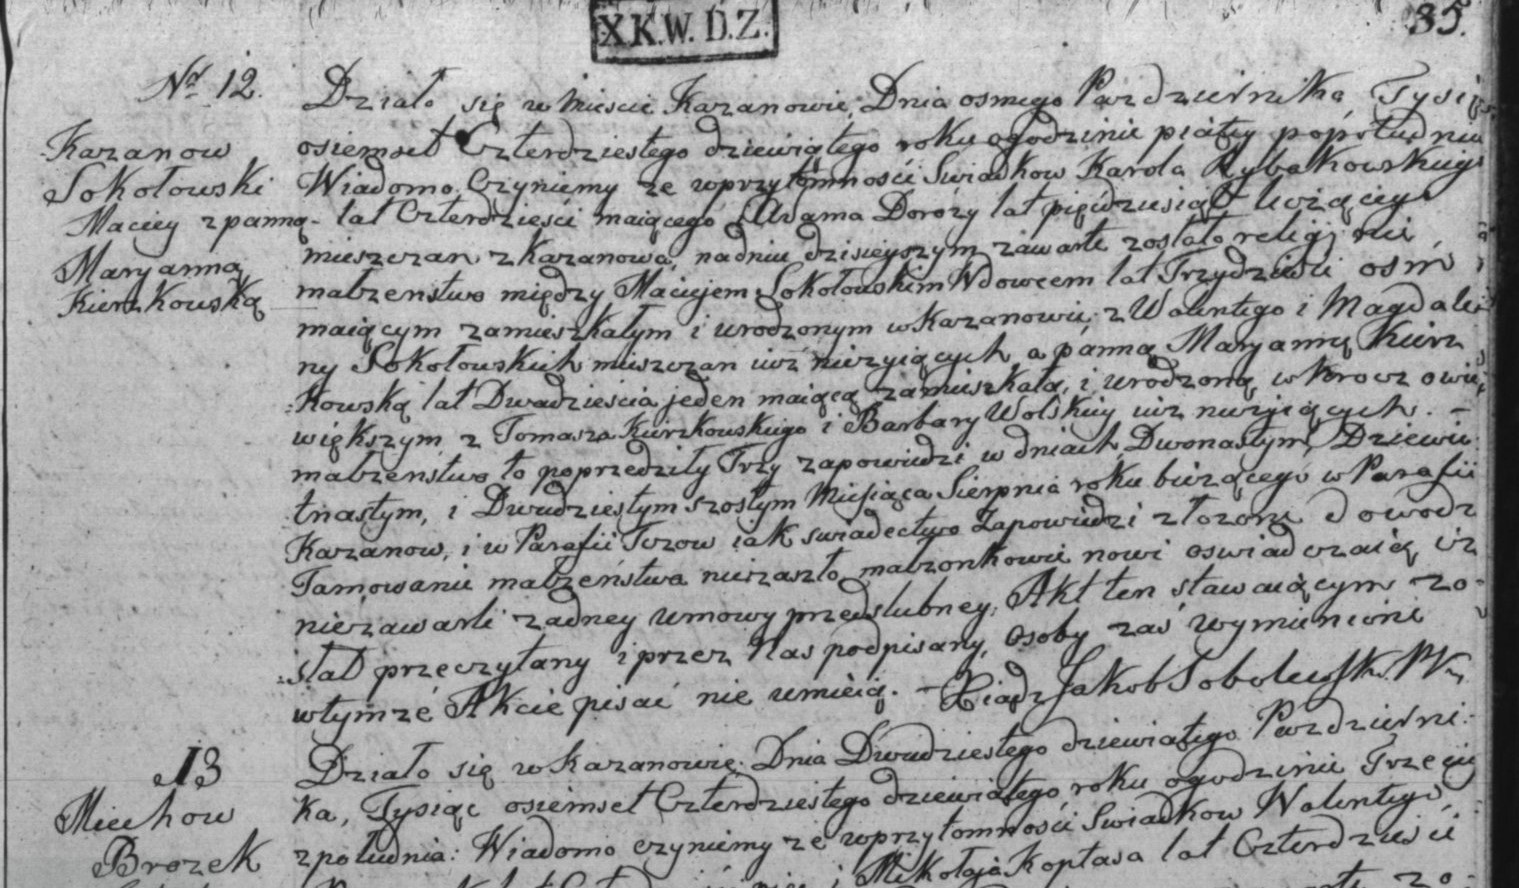 X.K.W.D.Z.
35.
Nr 12.
Kazanow
Sokołowski
Maciey z panną
Maryanną
Kierzkowską
Działo się w Mieście Kazanowie, Dnia osmego Pazdziernika, Tysią
osiemset Czterdziestego dziewiątego roku o godzinie piątey popołudniu
Wiadomo Czyniemy ze w przytomnosci Swiadkow Karola Rybakowskiego
lat Czterdzieści maiącego, Adama Doroży lat pięćdziesiąt liczącey
mieszczan z Kazanowa, na dniu dzisieyszym zawarte zostało religijnie
małzenstwo między Maciejem Sokołowskim Wdowcem lat Trzydzieści osm
maiącym zamieszkałym i urodzonym w Kazanowie, z Walentego i Magdale
ny Sokołowskich mieszczan iuż nieżyiących, a panną Maryanną Kierz
kowską lat Dwadzieścia jeden maiącą zamieszkałą, i urodzoną w
większym z Tomasza Kierzkowskiego i Barbary Wolskiey iuż nieżyiących. –
małzenstwo to poprzedziły Trzy zapowiedzi w dniach Dwonastym, Dziewię
tnastym, i Dwudziestym szostym Miesiąca Sierpnia roku bieżącego w Parafii
Kazanow, i w Parafii Tczow iak swiadectwo Zapowiedzi złozone dowodz
Tamowanie małzeństwa niezaszło, małzonkowie nowi oswiadczaią iż
niezawarli zadney umowy przedslubney. Akt ten stawaiącym zo-
stał przeczytany i przez Nas podpisany, Osoby zaś wymienione
w tymze Akcie pisać nie umieią. – Xiądz Jakob Sobolewski
13
Miechow
Brozek
Działo się w Kazanowie, Dnia Dwudziestego dziewiątego Pazdzierni-
ka, Tysiąc osiemset Czterdziestego dziewiątego roku o godzinie Trzeciey
z południa: Wiadomo czyniemy ze w przytomności Swiadkow Walentego
Mikołaja Kopłasa lat Czterdzieści